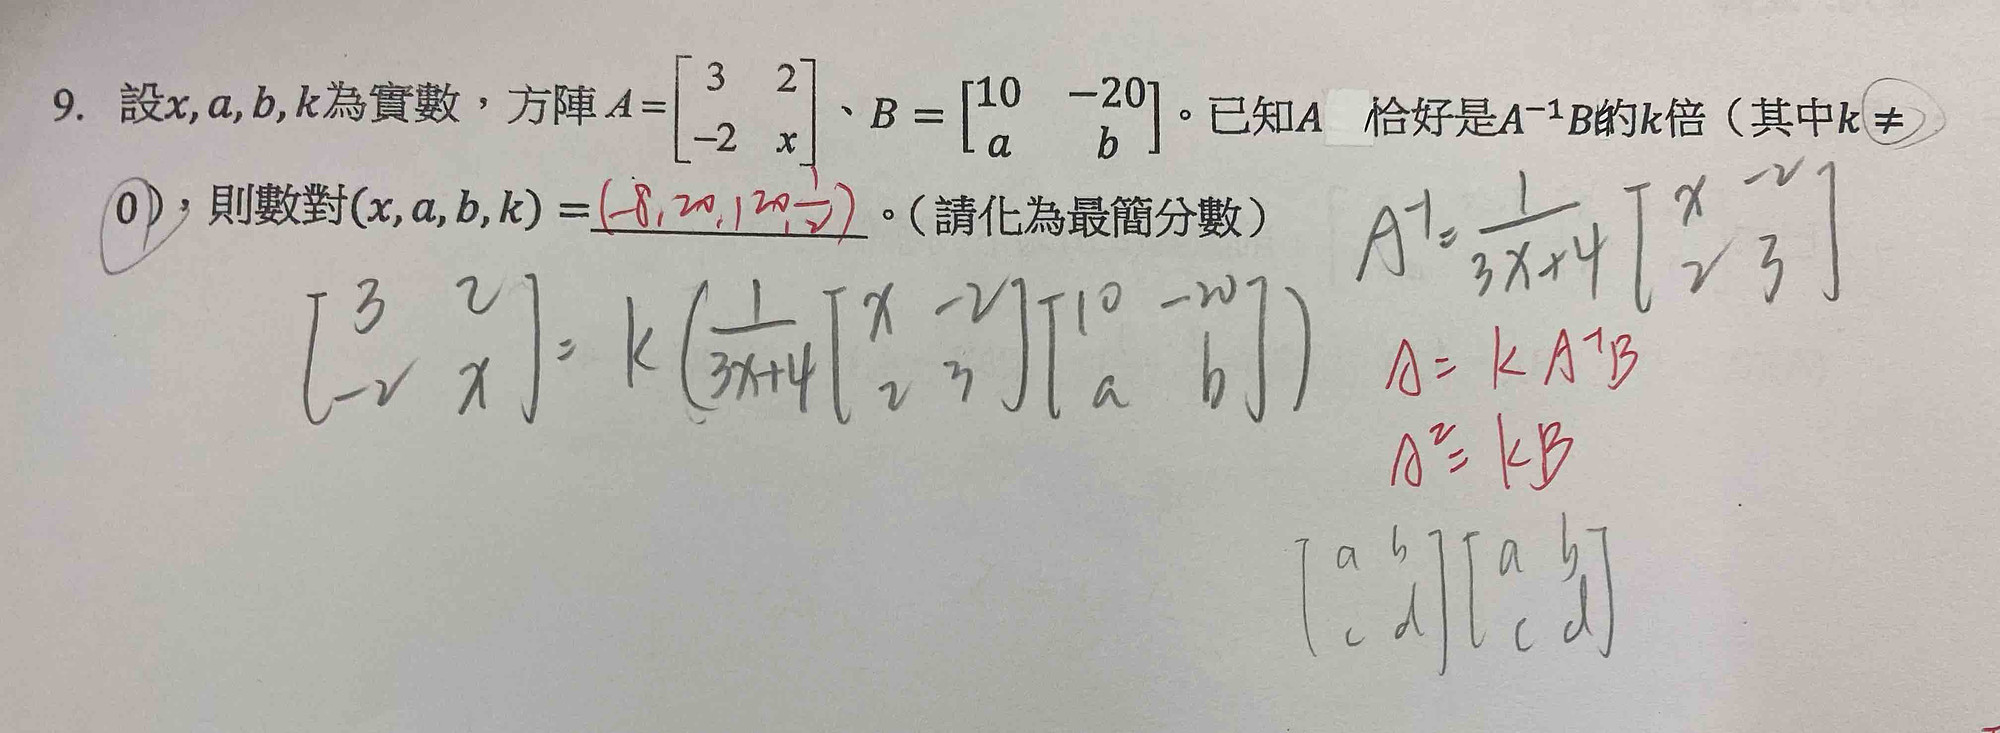 9. 設x, a, b, k為實數，方陣 A=[3 2 -2 x]、B = [10 -20 a b]。已知A 恰好是A⁻¹B的k倍（其中k ≠
0），則數對(x, a, b, k) = (-8, 20, 120, 1/2)。（請化為最簡分數）
A⁻¹= 1/3x+4 [x -2 2 3]
[3 2 -2 x] = k(1/3x+4 [x -2 2 3][10 -20 a b])
A= kA⁻¹B
A²= kB
[a b c d][a b c d]